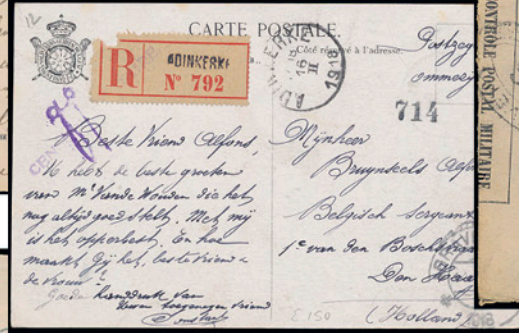 12
CARTE POSTALE.
Côté réservé à l'adresse.
R
ADINKERKE
N° 792
ADINKERKE
16
II
1918
714
CONTRÔLE POSTAL MILITAIRE
CEN
Postzeg
Beste Vriend Alfons,
U hebt de beste groeten
van Mr Vande Wouden die het
nog altijd goed stelt. Met mij
is het opperbest. En hoe
maakt Gij het, beste vriend &
de vrouw?
Goeden handdruk van
Uwen toegenegen vriend
Mijnheer
Bruynseels Alfons
Belgisch sergeant
1e van den Bosch
Den Haag
(Holland
E 150